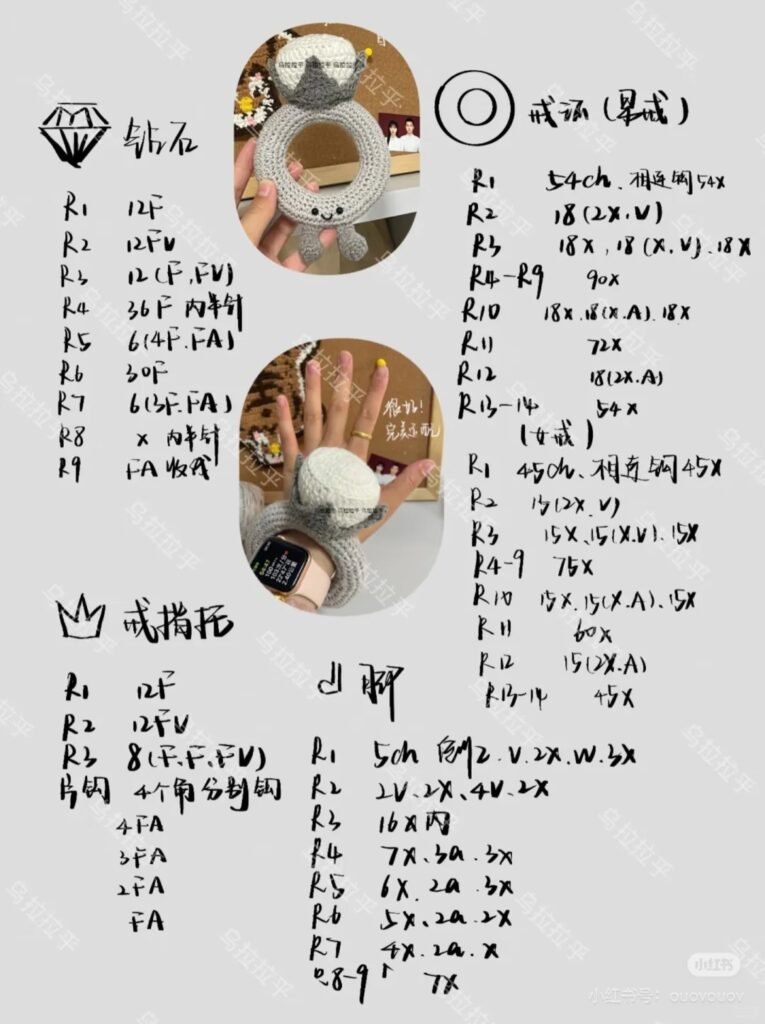 钻石
R1 12F
R2 12FV
R3 12(F,FV)
R4 36F 内半针
R5 6(4F.FA)
R6 30F
R7 6(3F.FA)
R8 X 内半针
R9 FA 收线
戒环(男戒)
R1 54ch、相连钩54X
R2 18(2X.V)
R3 18X,18(X.V).18X
R4-R9 90X
R10 18X.18(X.A).18X
R11 72X
R12 18(2X.A)
R13-14 54X
(女戒)
R1 45ch、相连钩45X
R2 15(2X.V)
R3 15X、15(X.V).15X
R4-9 75X
R10 15X.15(X.A).15X
R11 60X
R12 15(2X.A)
R13-14 45X
很好!
完美适配
戒指托
R1 12F
R2 12FV
R3 8(F.F.FV)
片钩 4个角分别钩
4FA
3FA
2FA
FA
脚
R1 5ch 倒2.V.2X.W.3X
R2 2V.2X、4V.2X
R3 16X内
R4 7X.3a.3X
R5 6X.2a.3X
R6 5X.2a.2X
R7 4X.2a.X
R8-9 7X
乌拉拉乎
小红书
小红书号:ouovouov